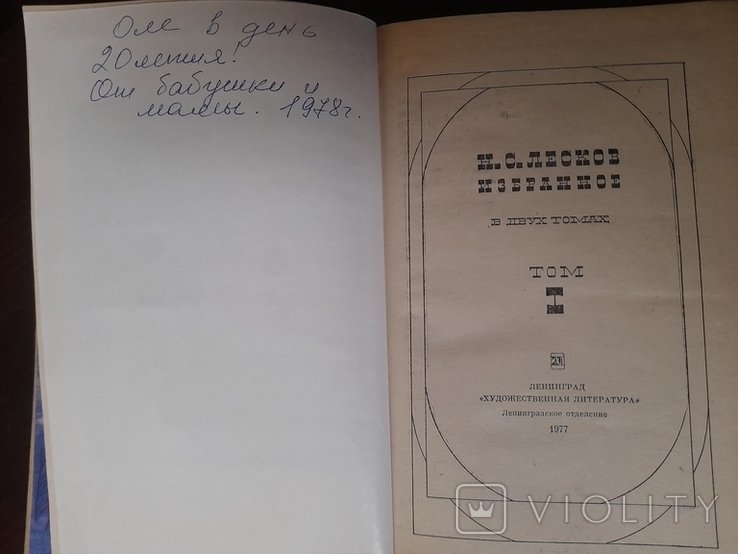 Оле в день
20летия!
От бабушки и
мамы. 1978г.
Н. С. ЛЕСКОВ
ИЗБРАННОЕ
В ДВУХ ТОМАХ
ТОМ
I
ЛЕНИНГРАД
«ХУДОЖЕСТВЕННАЯ ЛИТЕРАТУРА»
Ленинградское отделение
1977
VIOLITY